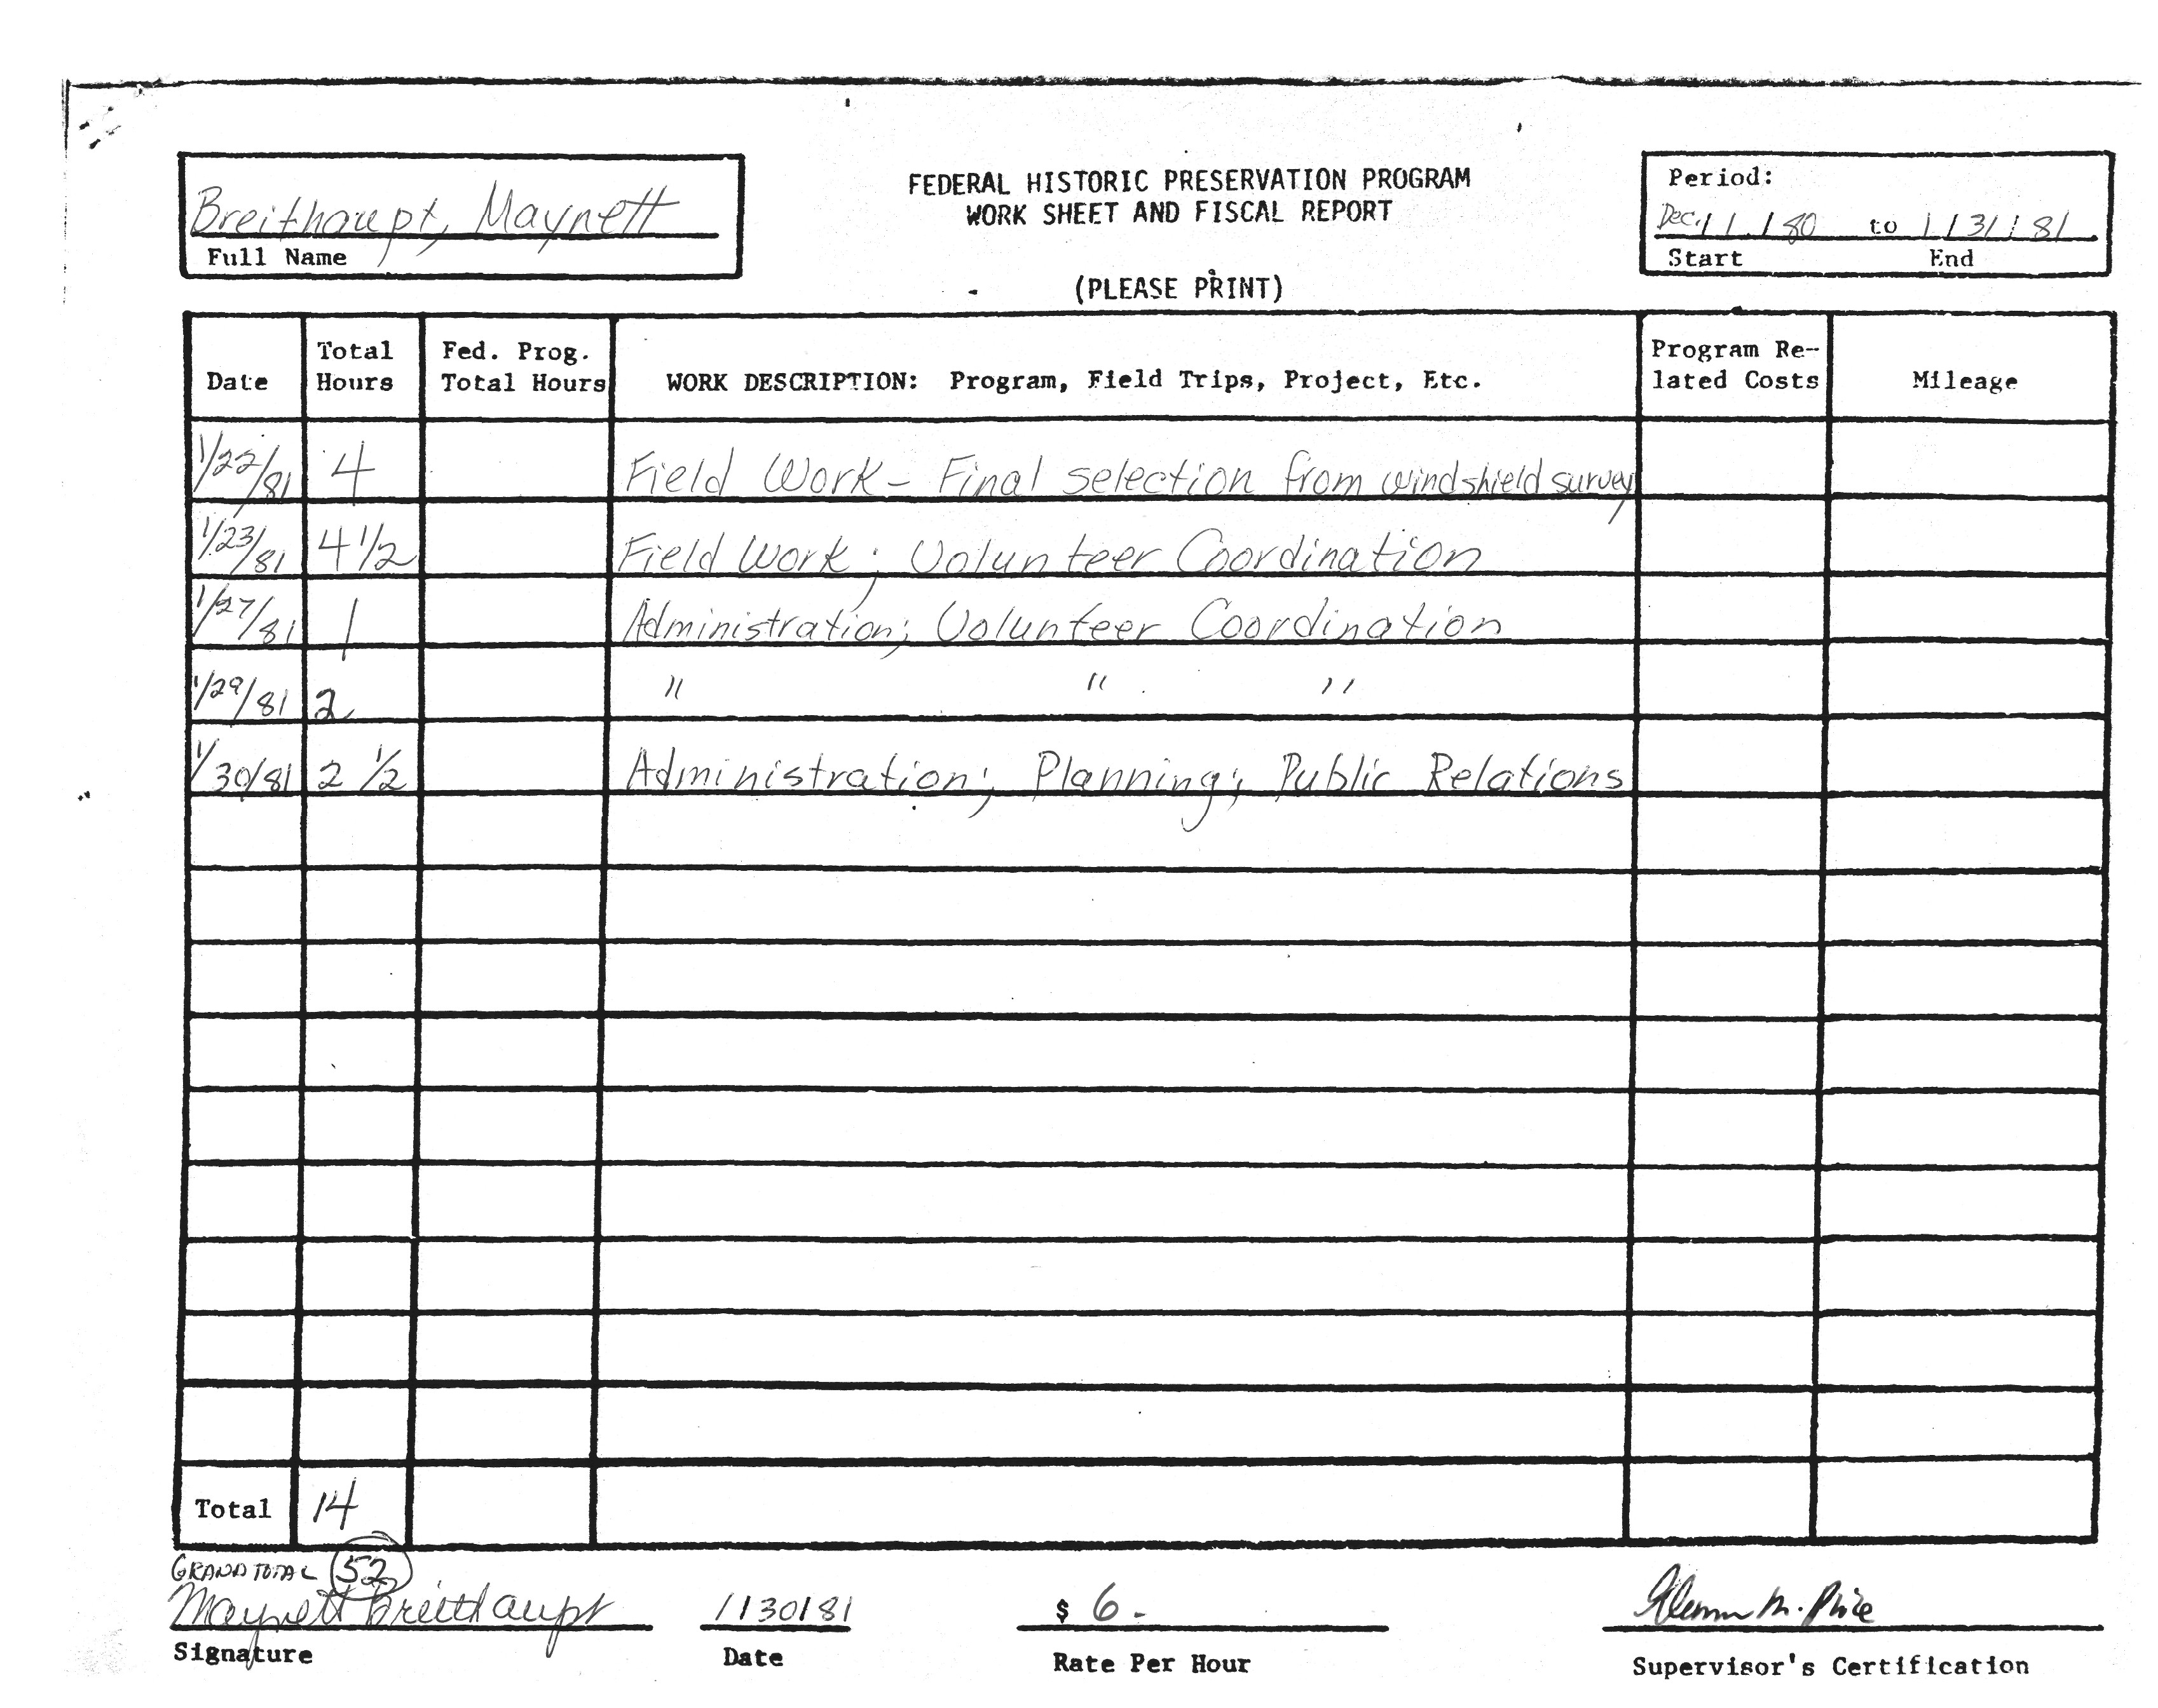 Breithaupt, Maynett
Full Name
FEDERAL HISTORIC PRESERVATION PROGRAM
WORK SHEET AND FISCAL REPORT
(PLEASE PRINT)
Period:
Dec. / 1 / 80 to 1 / 31 / 81
Start End
Date Total Hours Fed. Prog. Total Hours WORK DESCRIPTION: Program, Field Trips, Project, Etc. Program Re- lated Costs Mileage
1/22/81 4 Field Work - Final selection from windshield survey
1/23/81 4 1/2 Field Work; Volunteer Coordination
1/27/81 1 Administration; Volunteer Coordination
1/29/81 2 " " "
1/30/81 2 1/2 Administration; Planning; Public Relations
Total 14
GRAND TOTAL 52
Maynett Breithaupt 1/30/81 $ 6.-
Signature Date Rate Per Hour Supervisor's Certification